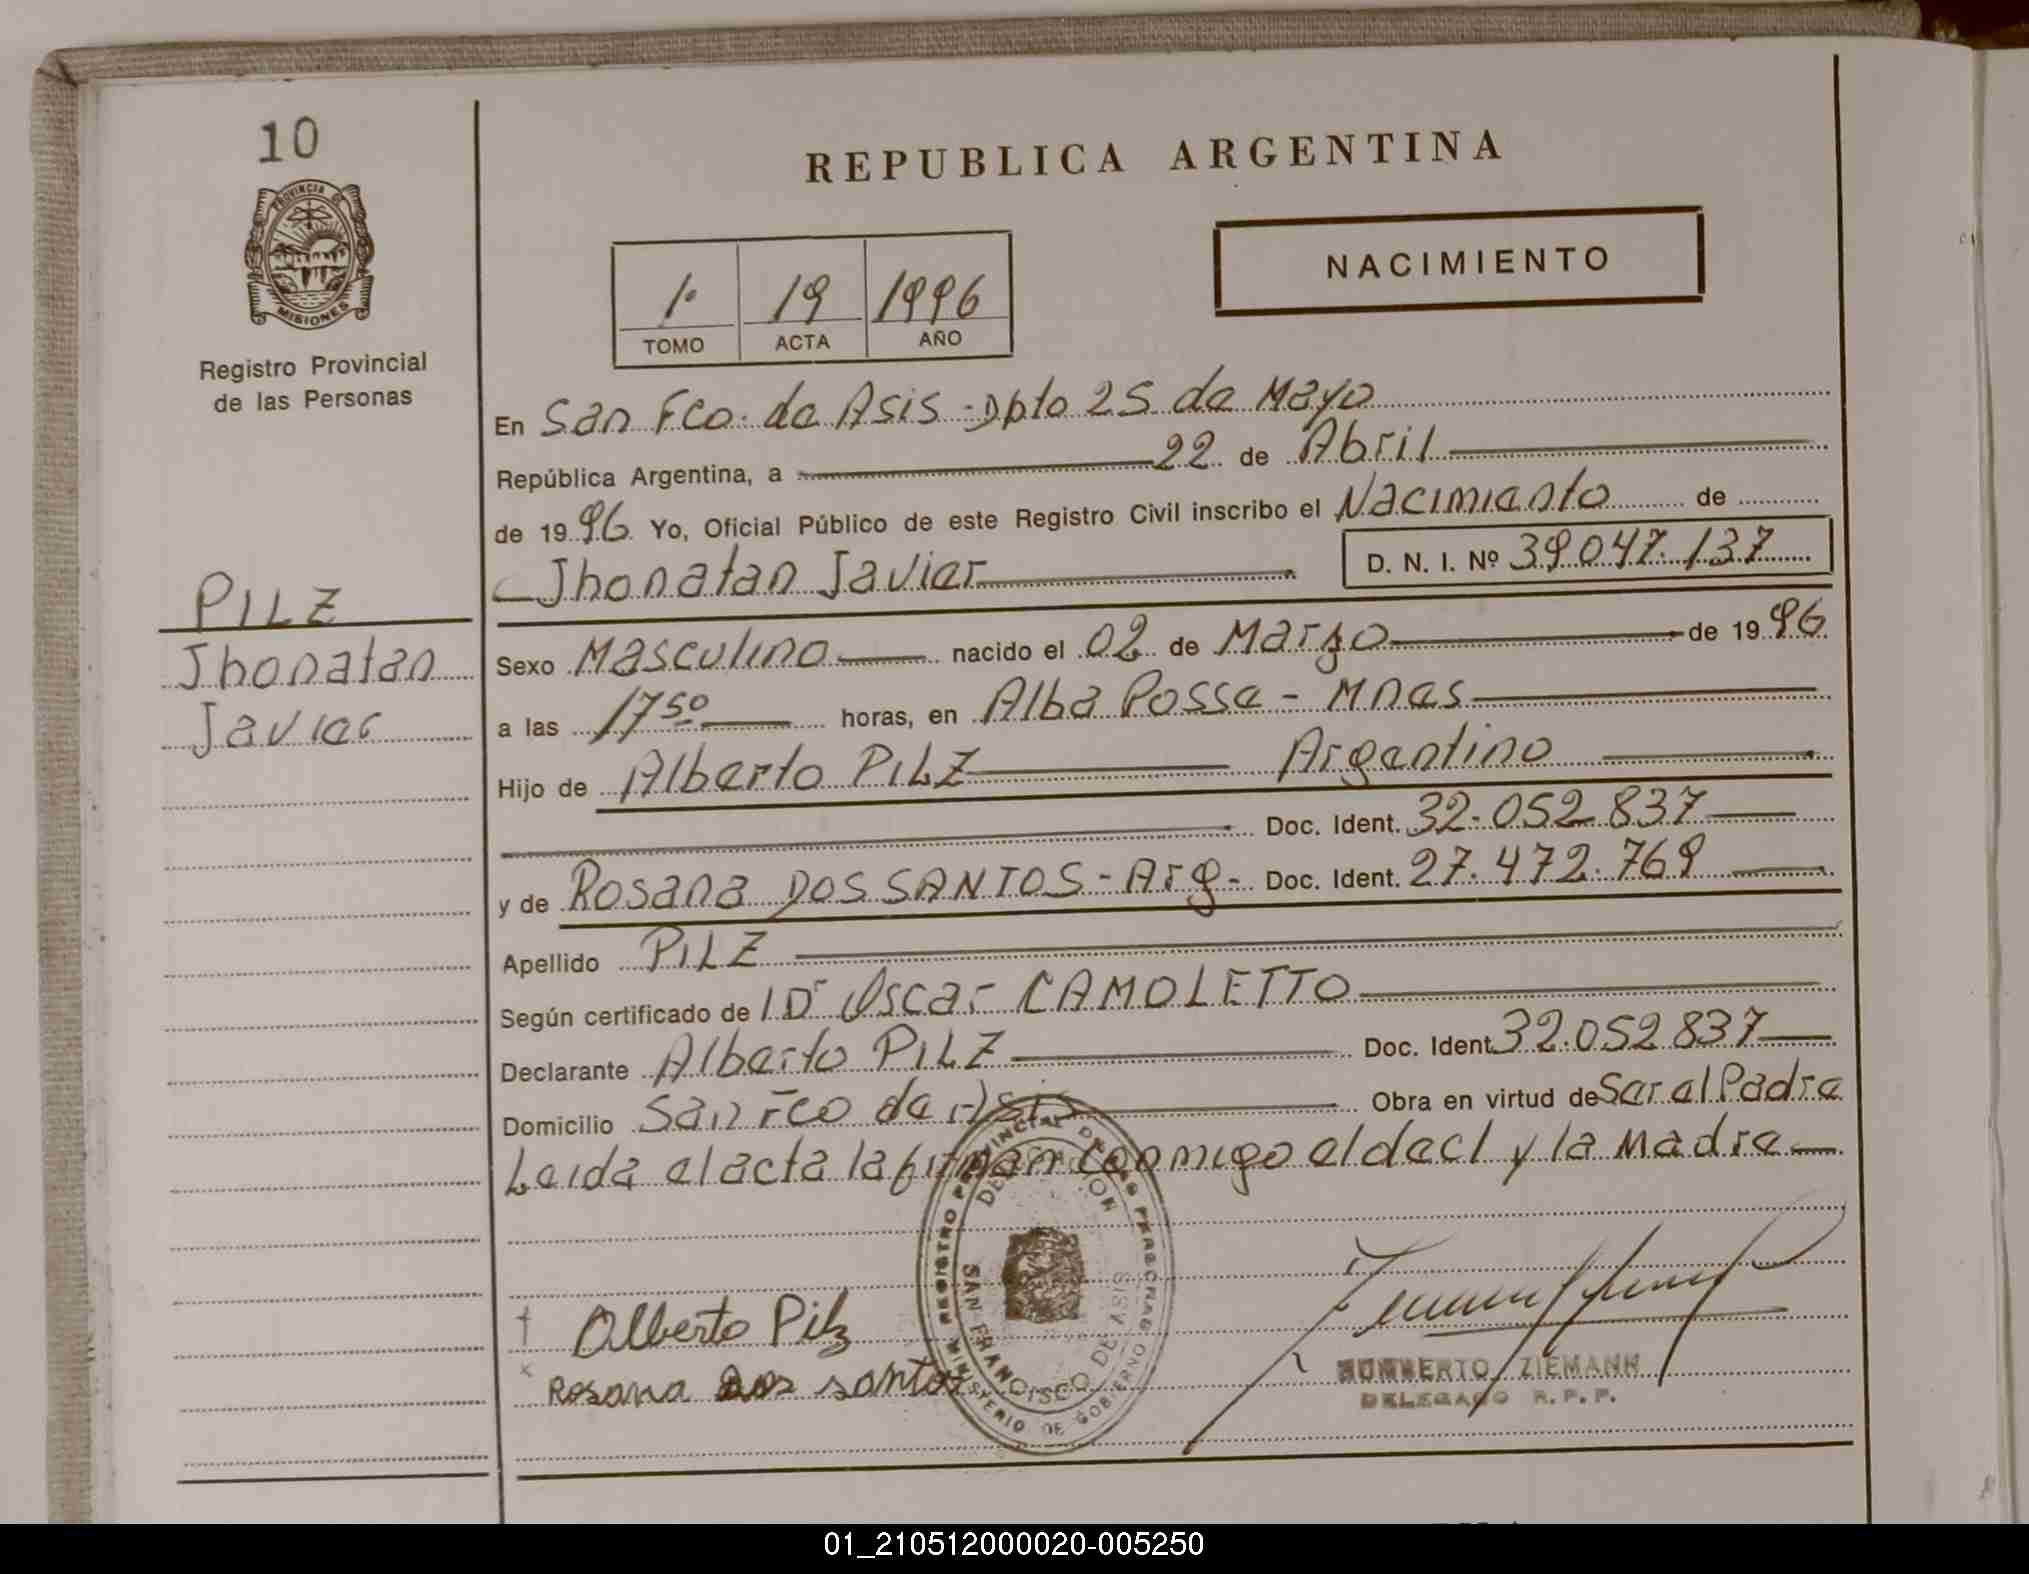 10
PROVINCIA DE
MISIONES
Registro Provincial
de las Personas
REPUBLICA ARGENTINA
NACIMIENTO
1º 19 1996
TOMO ACTA AÑO
En San Fco. de Asis - Dpto 25 de Mayo
República Argentina, a 22 de Abril
de 1996 Yo, Oficial Público de este Registro Civil inscribo el Nacimiento de
Jhonatan Javier D. N. I. Nº 39.047.137
PILZ
Jhonatan
Javier
Sexo Masculino nacido el 02 de Marzo de 1996
a las 17 50 horas, en Alba Posse - Mnes
Hijo de Alberto PILZ Argentino
Doc. Ident. 32.052.837
y de Rosana DOS SANTOS - Arg - Doc. Ident. 27.472.769
Apellido PILZ
Según certificado de Dr Oscar CAMOLETTO
Declarante Alberto PILZ Doc. Ident. 32.052.837
Domicilio San Fco de Asis Obra en virtud de Ser el Padre
Leida el acta la firman conmigo el decl y la Madre
REGISTRO PROVINCIAL DE LAS PERSONAS
DELEGACION
SAN FRANCISCO DE ASIS
MINISTERIO DE GOBIERNO
Alberto Pilz
x Rosana dos santos
HUMBERTO ZIEMANN
DELEGADO R.P.P.
01_210512000020-005250